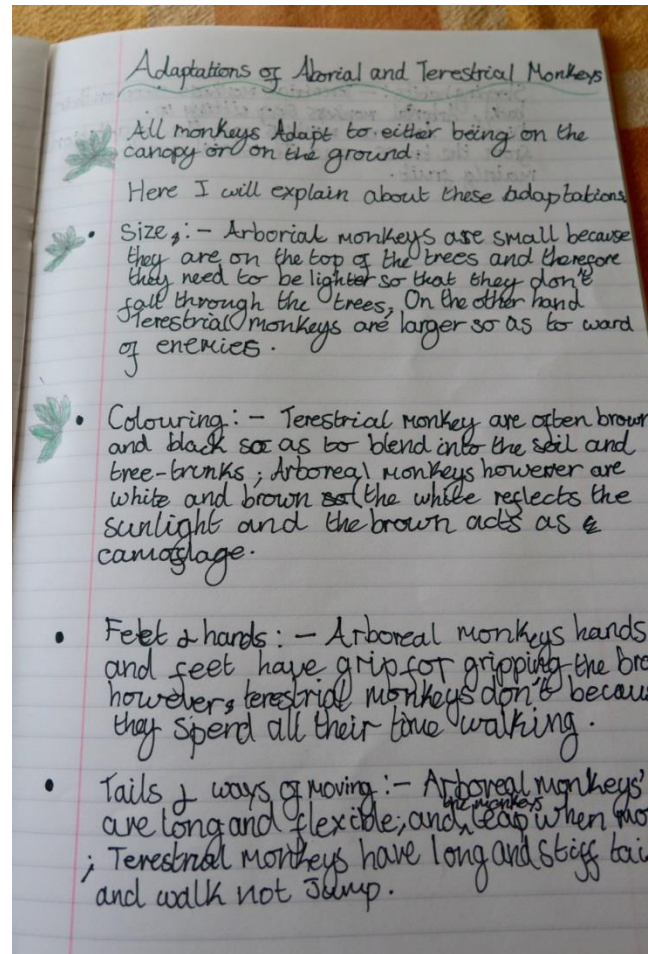 Adaptations of Aborial and Terestrial Monkeys
All monkeys Adapt to either being on the
canopy or on the ground.
Here I will explain about these adaptations
• Size : - Arborial monkeys are small because
they are on the top of the trees and therefore
they need to be lighter so that they don't
fall through the trees, On the other hand
Terestrial monkeys are larger so as to ward
of enemies.
• Colouring : - Terestrial monkey are often brown
and black so as to blend into the soil and
tree-trunks ; Arboreal monkeys however are
white and brown so the white reflects the
sunlight and the brown acts as
camoflage.
• Feet & hands : - Arboreal monkeys hands
and feet have grip for gripping the bra
however, terestrial monkeys don't becau
they spend all their time walking.
• Tails & ways of moving : - Arboreal monkeys'
are long and flexible; and the monkeys leap when mo
; Terestrial monkeys have long and stiff tai
and walk not Jump.